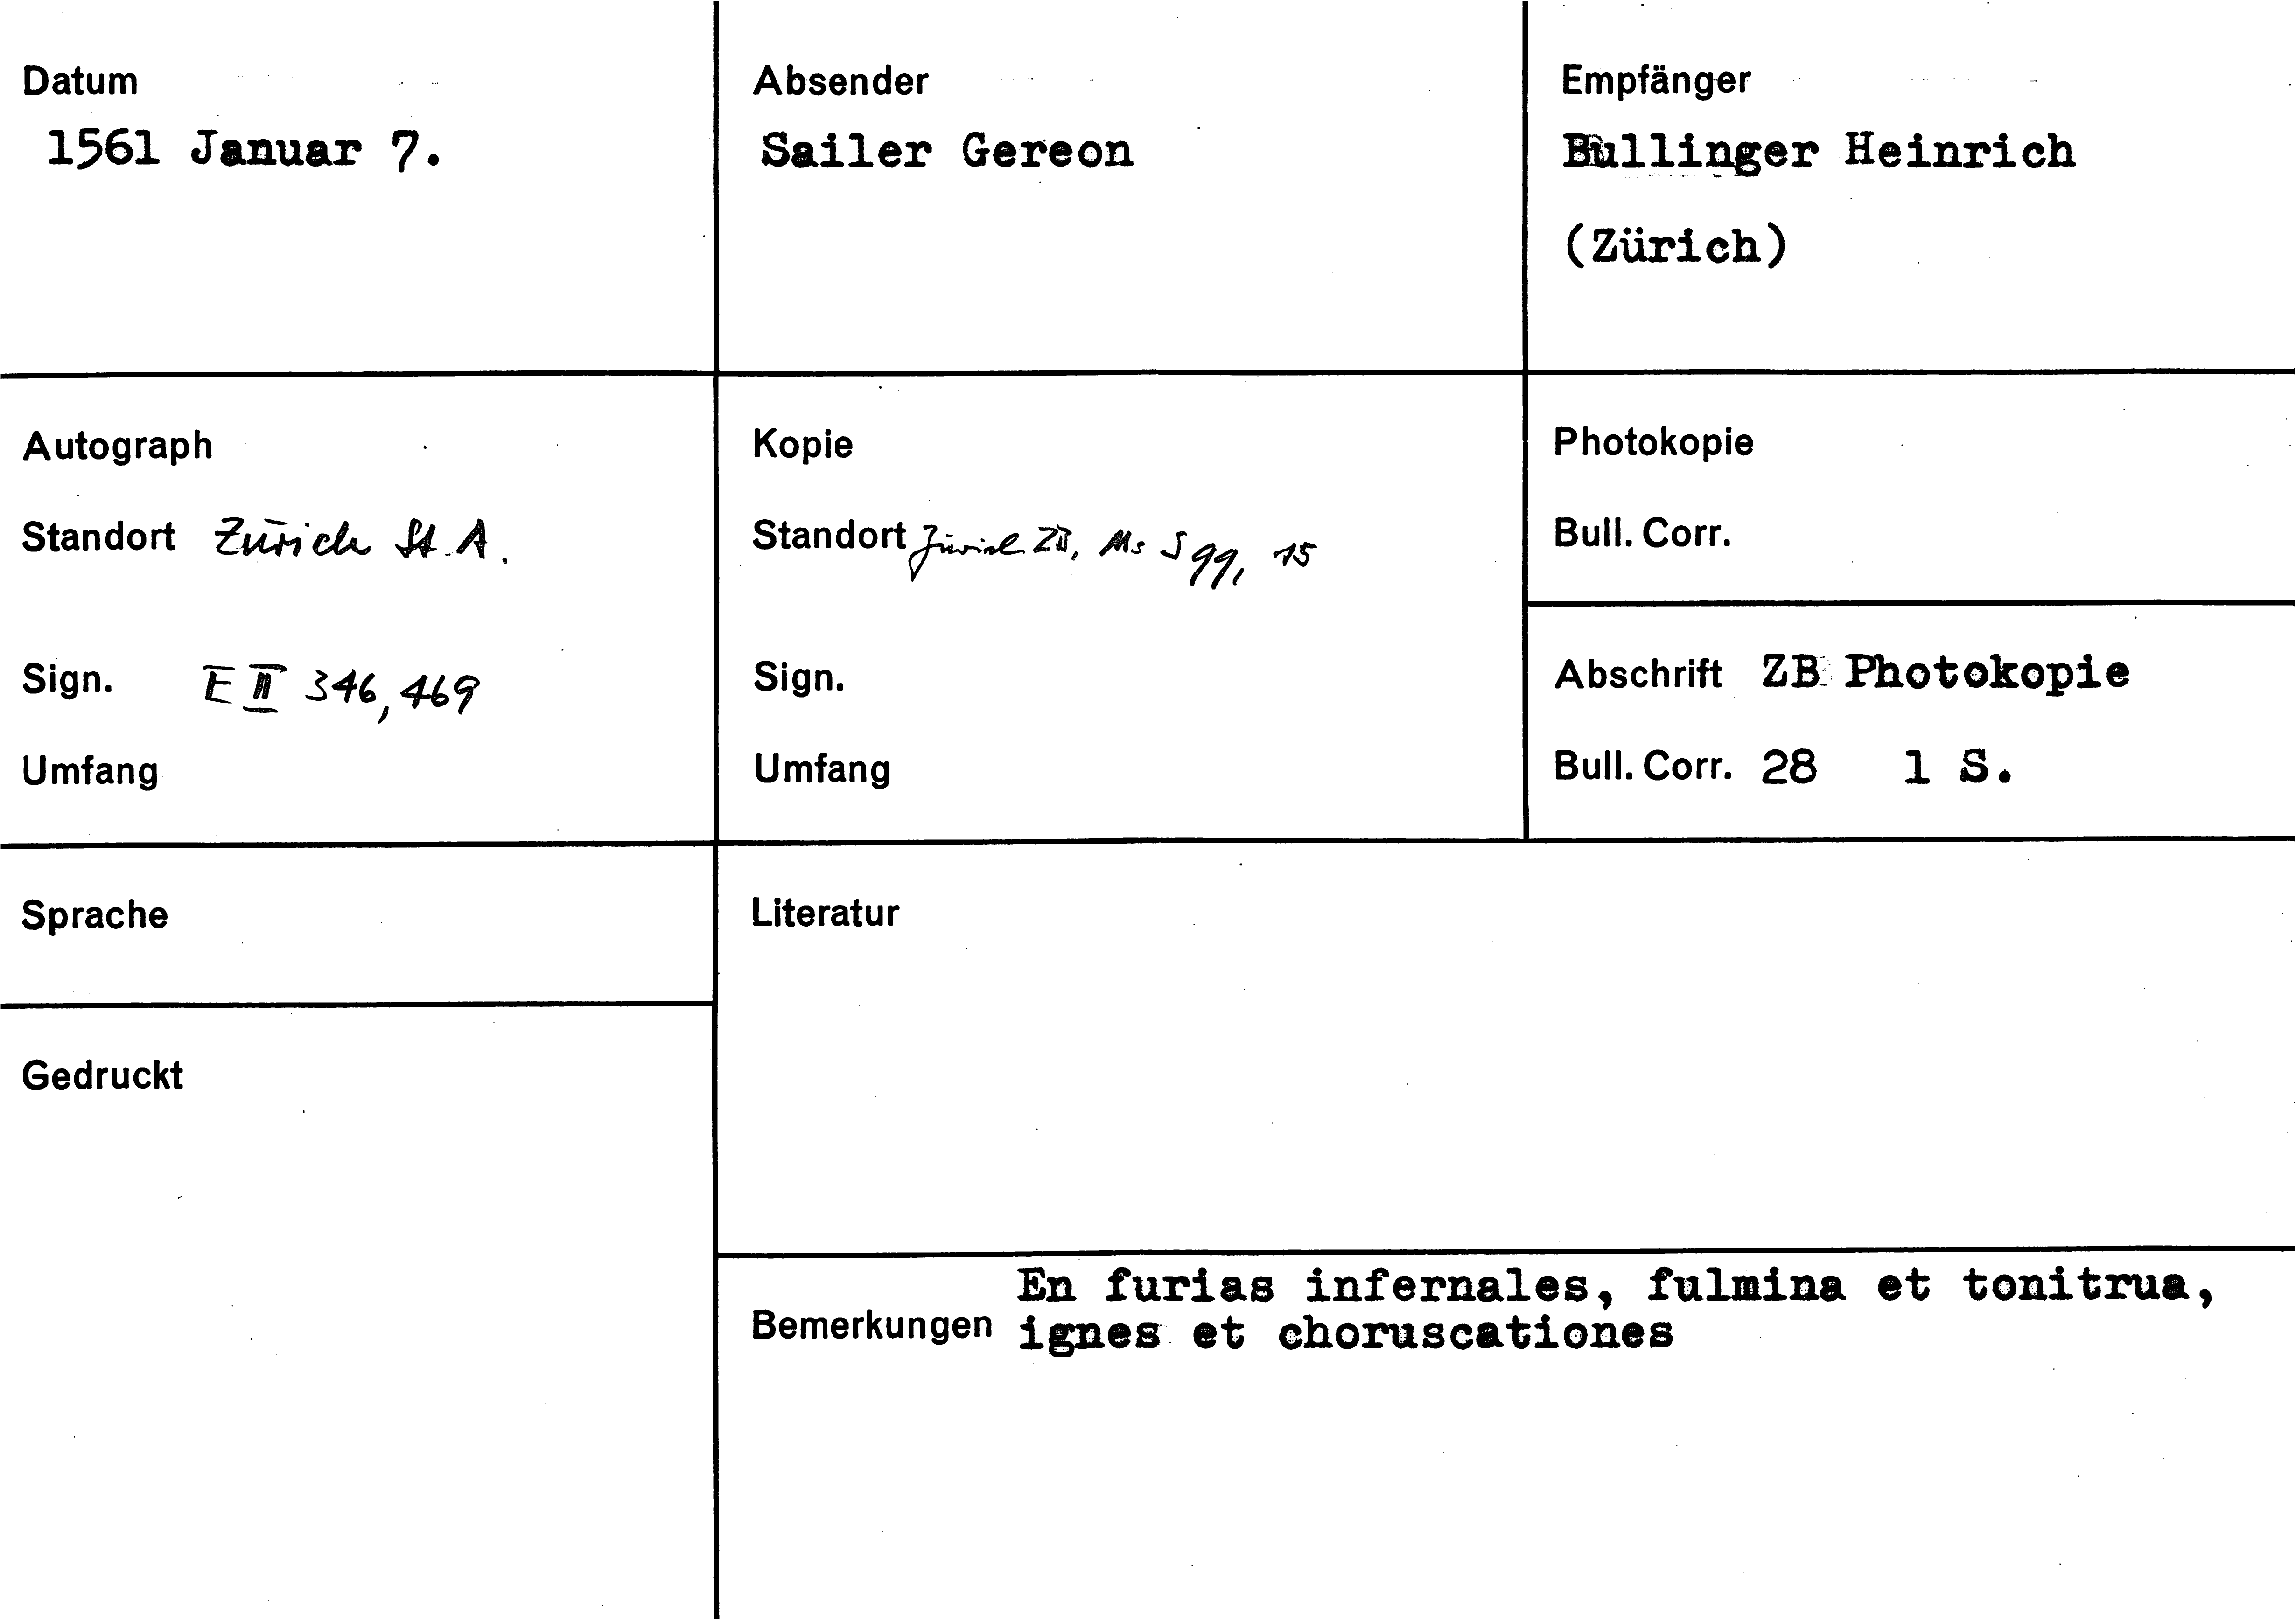 Datum
1561 Januar 7.
Absender
Sailer Gereon
Empfänger
Bullinger Heinrich
(Zürich)
Autograph
Standort Zürich St. A.
Sign. E II 346, 469
Umfang
Kopie
Standort Zürich ZB, Ms S 99, 15
Sign.
Umfang
Photokopie
Bull. Corr.
Abschrift ZB Photokopie
Bull. Corr. 28 1 S.
Sprache
Literatur
Gedruckt
Bemerkungen En furias infernales, fulmina et tonitrua,
ignes et choruscationes